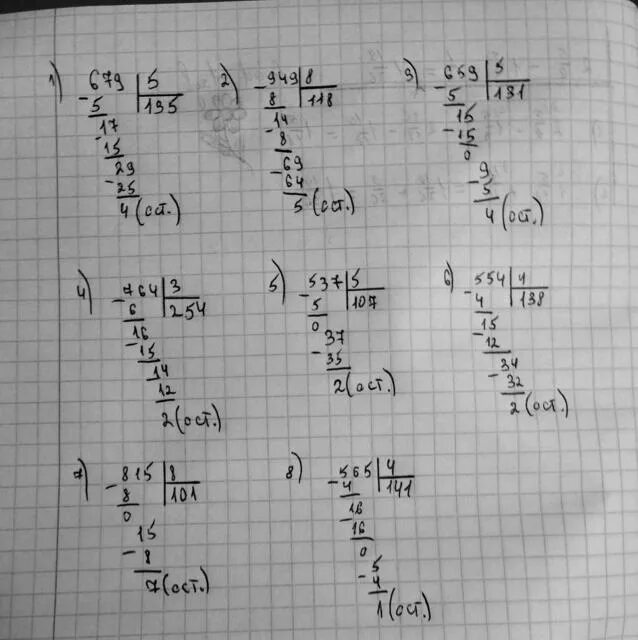 1) 679 5
- 5 135
17
- 15
29
- 25
4 (ост.)
2) - 949 8
8 118
- 14
8
- 69
64
5 (ост.)
3) - 659 5
5 131
15
- 15
0
- 9
5
4 (ост.)
4) - 764 3
6 254
- 16
15
14
12
2 (ост.)
5) - 537 5
5 107
0
37
- 35
2 (ост.)
6) - 554 4
4 138
15
- 12
34
- 32
2 (ост.)
7) - 815 8
8 101
0
15
- 8
7 (ост.)
8) - 565 4
4 141
16
- 16
0
5
- 4
1 (ост.)